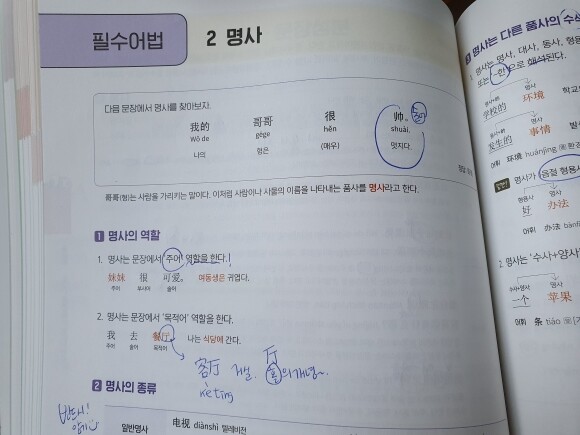 필수어법
2 명사
다음 문장에서 명사를 찾아보자.
我的 哥哥 很 帅。
Wǒ de gēge hěn shuài.
나의 형은 (매우) 멋지다.
哥哥(형)는 사람을 가리키는 말이다. 이처럼 사람이나 사물의 이름을 나타내는 품사를 명사라고 한다.
1 명사의 역할
1. 명사는 문장에서 '주어' 역할을 한다.
妹妹 很 可爱。 여동생은 귀엽다.
주어 부사어 술어
2. 명사는 문장에서 '목적어' 역할을 한다.
我 去 餐厅。 나는 식당에 간다.
주어 술어 목적어
客厅 거실. 厅
홀의 개념~
kètīng
2 명사의 종류
반드시!
일반명사
电视 diànshì 텔레비전
명사는 다른 품사의 수식
1. 명사는 명사, 대사, 동사, 형용
또는 '~한'으로 해석된다.
명사+的 명사
学校的 环境 학교
명사
发生的 事情 발생
어휘 环境 huánjìng 명 환경
명사가
음절 형용사
형용사 명사
好 办法
어휘 办法 bànfǎ
2. 명사는 '수사+양사'
수사+양사 명사
一个 苹果
어휘 条 tiáo